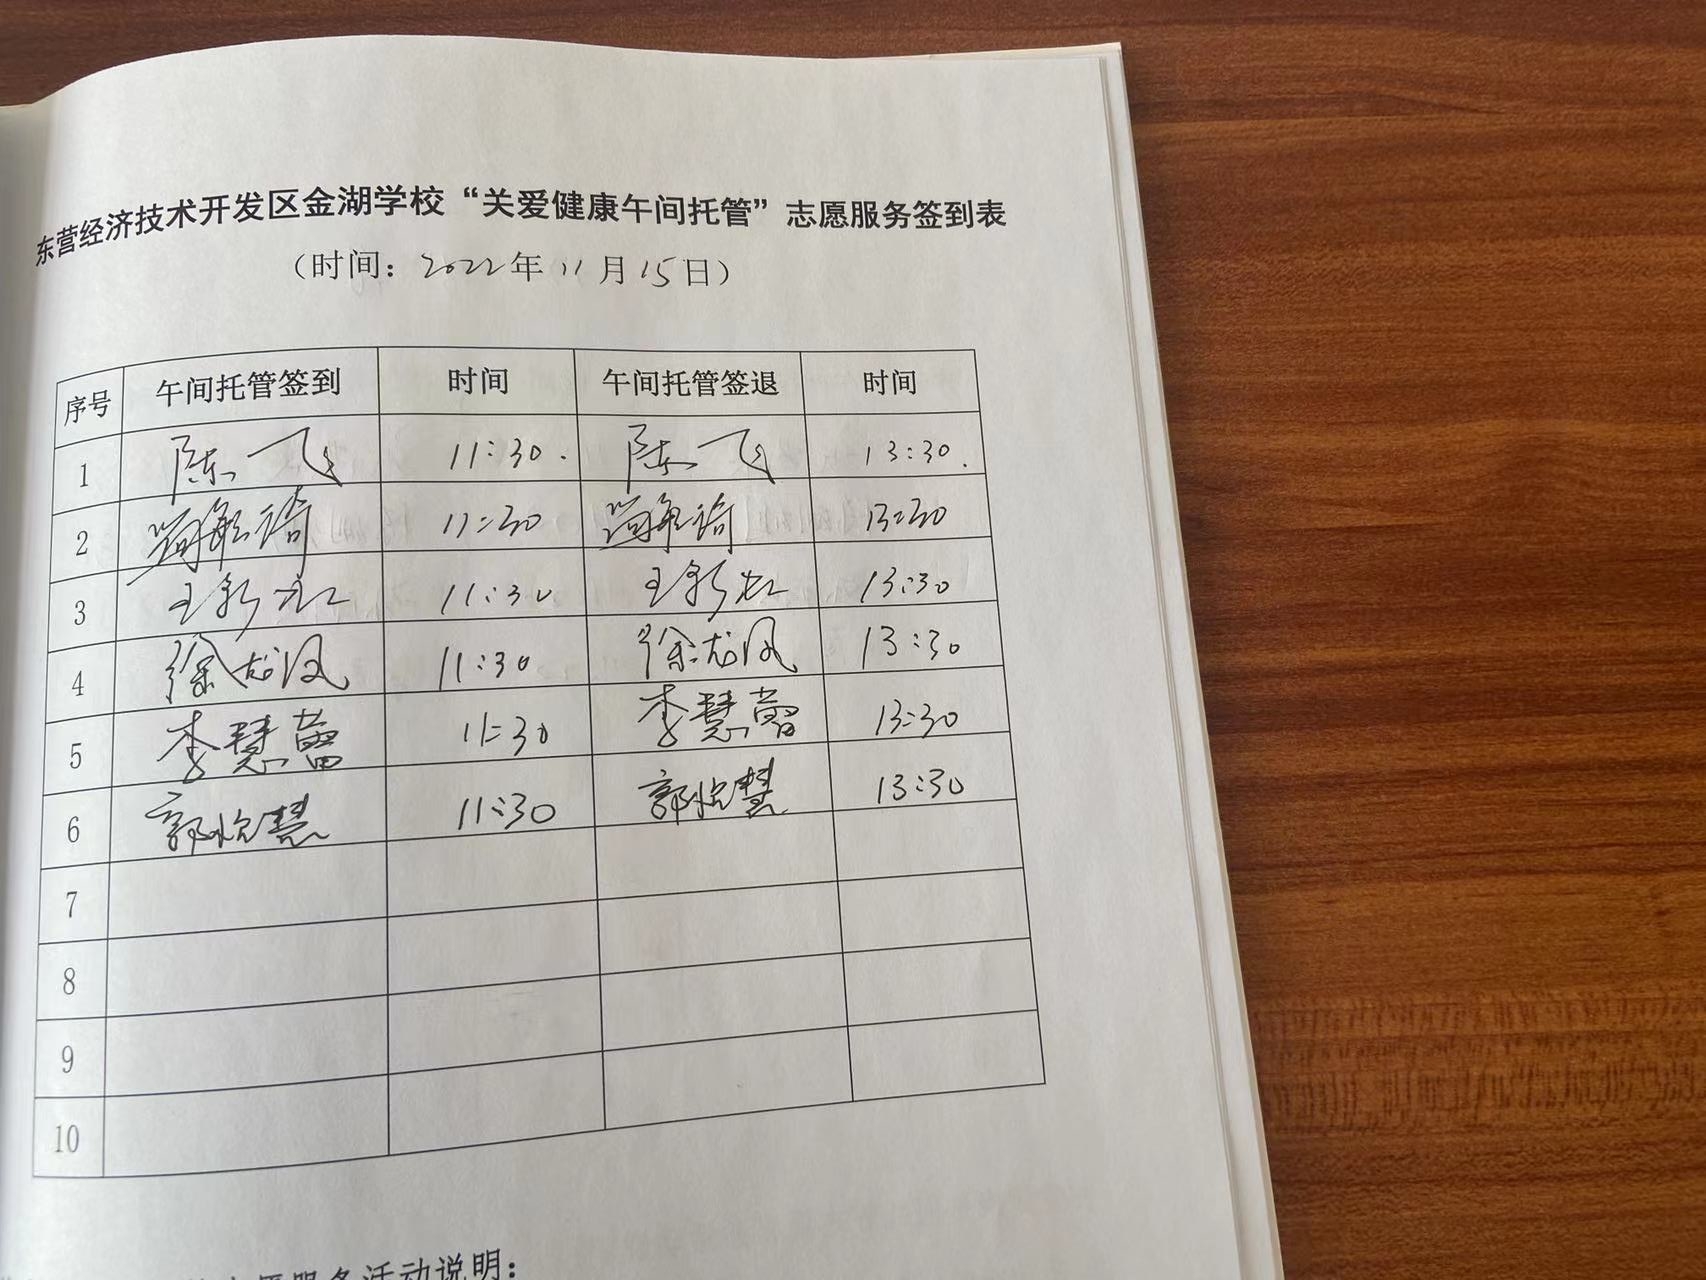 东营经济技术开发区金湖学校“关爱健康午间托管”志愿服务签到表
（时间：2022年11月15日）
序号 午间托管签到 时间 午间托管签退 时间
1 陈飞 11:30. 陈飞 13:30.
2 11:30 13:30
3 王彩虹 11:30 王彩虹 13:30
4 徐龙凤 11:30 徐龙凤 13:30
5 李慧蕾 11:30 李慧蕾 13:30
6 郭悦慧 11:30 郭悦慧 13:30
7
8
9
10
愿服务活动说明：